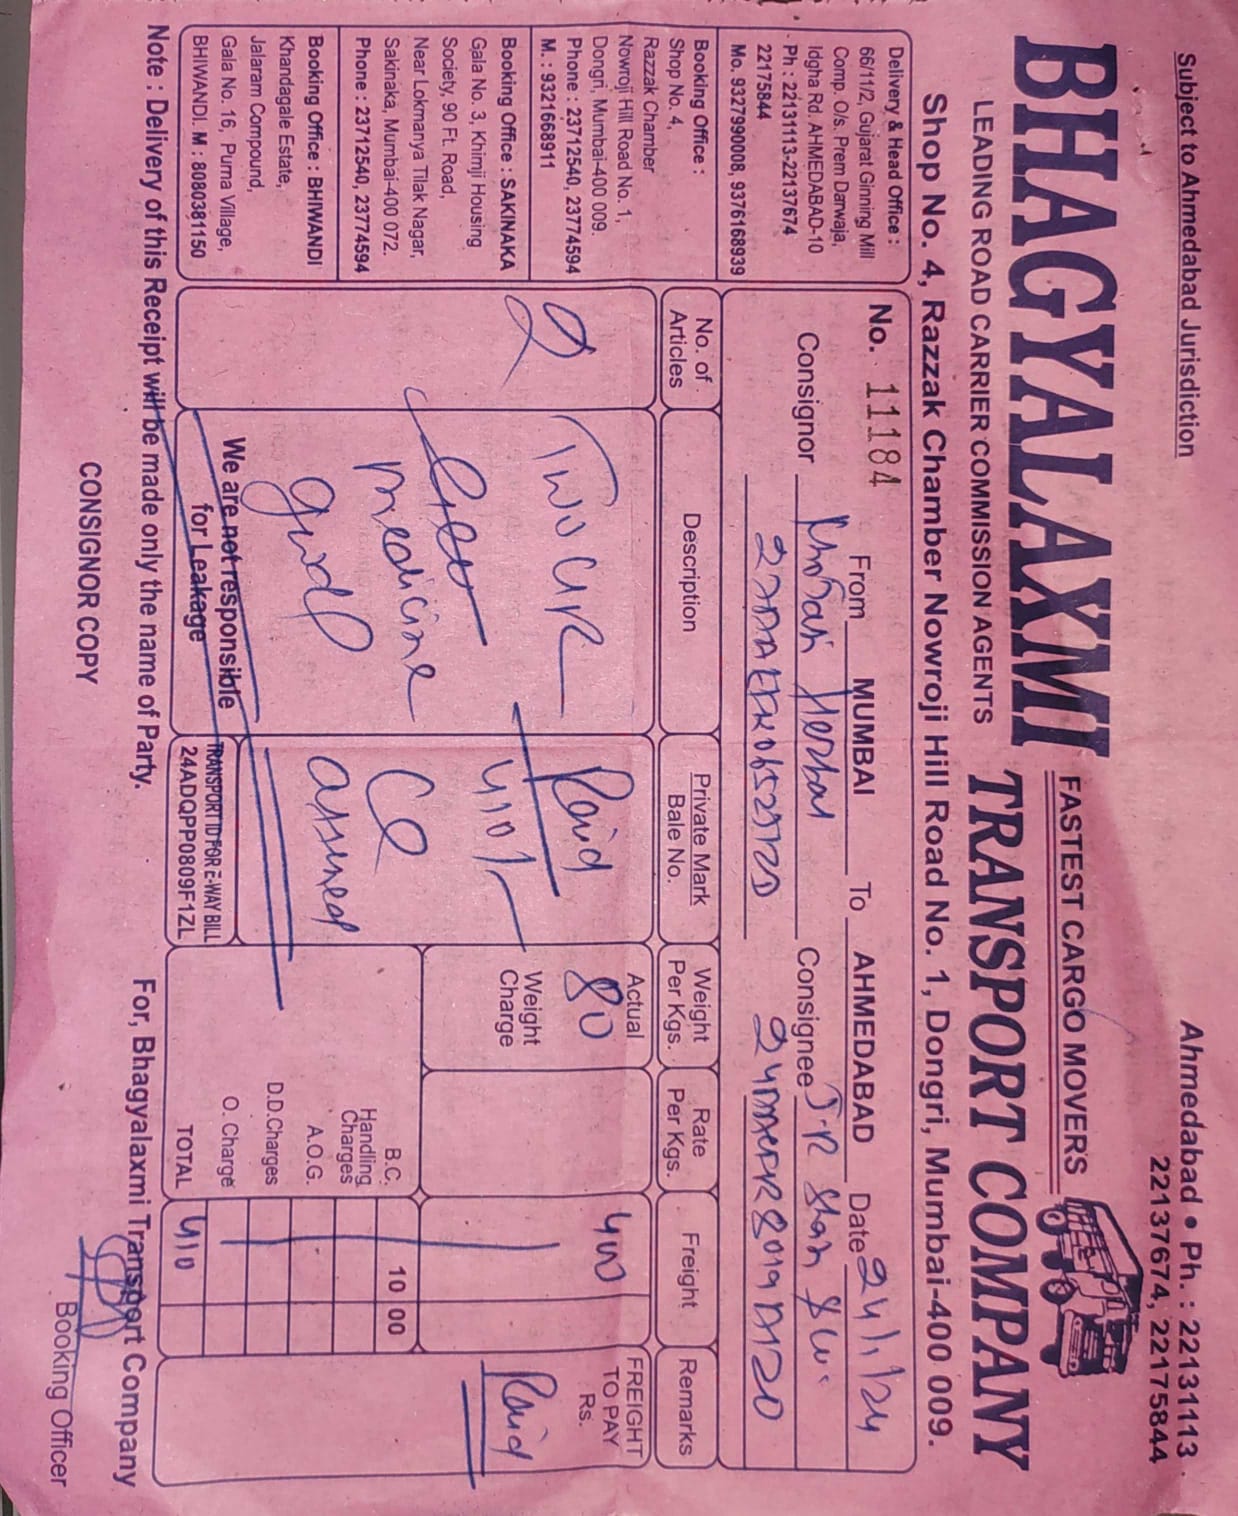 Subject to Ahmedabad Jurisdiction
Ahmedabad • Ph. : 22131113
22137674, 22175844
BHAGYALAXMI
FASTEST CARGO MOVERS
TRANSPORT COMPANY
LEADING ROAD CARRIER COMMISSION AGENTS
Shop No. 4, Razzak Chamber Nowroji Hill Road No. 1, Dongri, Mumbai-400 009.
Delivery & Head Office :
66/11/2, Gujarat Ginning Mill
Comp. O/s. Prem Darwaja,
Idgha Rd. AHMEDABAD-10
Ph : 22131113-22137674
22175844
Mo. 9327990008, 9376168939
Booking Office :
Shop No. 4,
Razzak Chamber
Nowroji Hill Road No. 1,
Dongri, Mumbai-400 009.
Phone : 23712540, 23774594
M. : 9321668911
Booking Office : SAKINAKA
Gala No. 3, Khimji Housing
Society, 90 Ft. Road,
Near Lokmanya Tilak Nagar,
Sakinaka, Mumbai-400 072.
Phone : 23712540, 23774594
Booking Office : BHIWANDI
Khandagale Estate,
Jalaram Compound,
Gala No. 16, Purna Village,
BHIWANDI. M : 8080381150
No. 11184 From MUMBAI To AHMEDABAD Date 24/1/24
Consignor Herbal Consignee Shah
No. of Articles
Description
Private Mark
Bale No.
Weight Per Kgs.
Rate Per Kgs.
Freight
Remarks
2
Two
medicine
Paid
410/-
Actual
80
Weight Charge
400
FREIGHT TO PAY Rs.
Paid
B.C. 10 00
Handling Charges
A.O.G.
D.D.Charges
O. Charge
TOTAL 410
We are not responsible
for Leakage
TRANSPORT ID FOR E-WAY BILL
24ADQPP0809F1ZL
Note : Delivery of this Receipt will be made only the name of Party.
For, Bhagyalaxmi Transport Company
CONSIGNOR COPY
Booking Officer